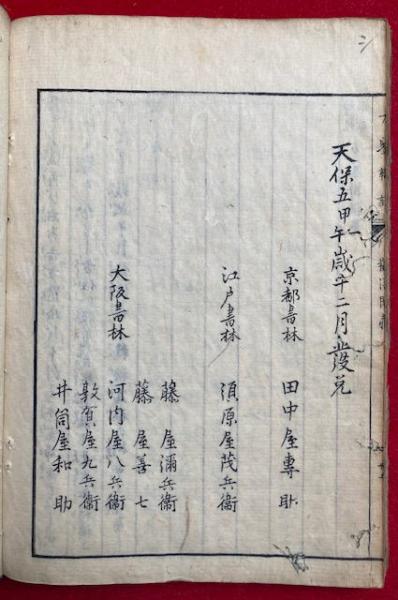 天保五甲午歳十二月發兌
京都書林　田中屋專助
江戸書林　須原屋茂兵衞
大阪書林
藤屋彌兵衞
藤屋善七
河内屋八兵衞
敦賀屋九兵衞
井筒屋和助